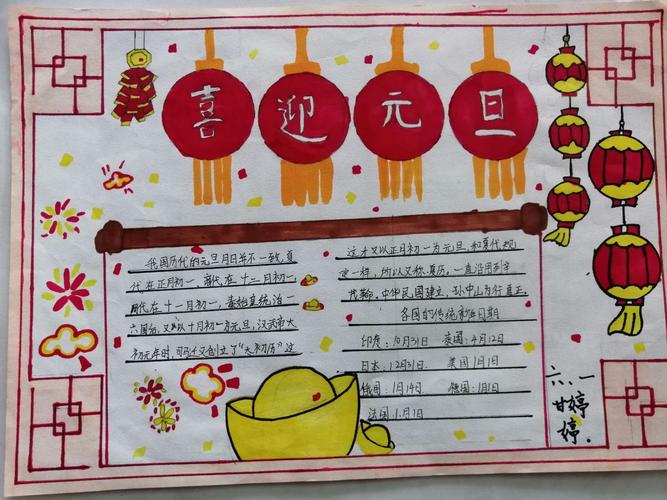 喜迎元旦
我国历代的元旦月日并不一致,夏
代在正月初一,商代在十二月初一
周代在十一月初一,秦始皇统一
六国后,又以十月初一为元旦,汉武帝太
初元年时,司马迁又创立了“太初历”这
才又以正月初一为元旦,和夏代规
定一样,所以又称夏历,一直沿用到辛
亥革命。中华民国建立,孙中山为行夏正,
各国的传统新年日期
印度:10月31日 泰国:4月12日
日本:12月31日 美国1月1日
俄国:1月14日 德国:1月1日
法国1月1日
六、一
甘婷
婷.